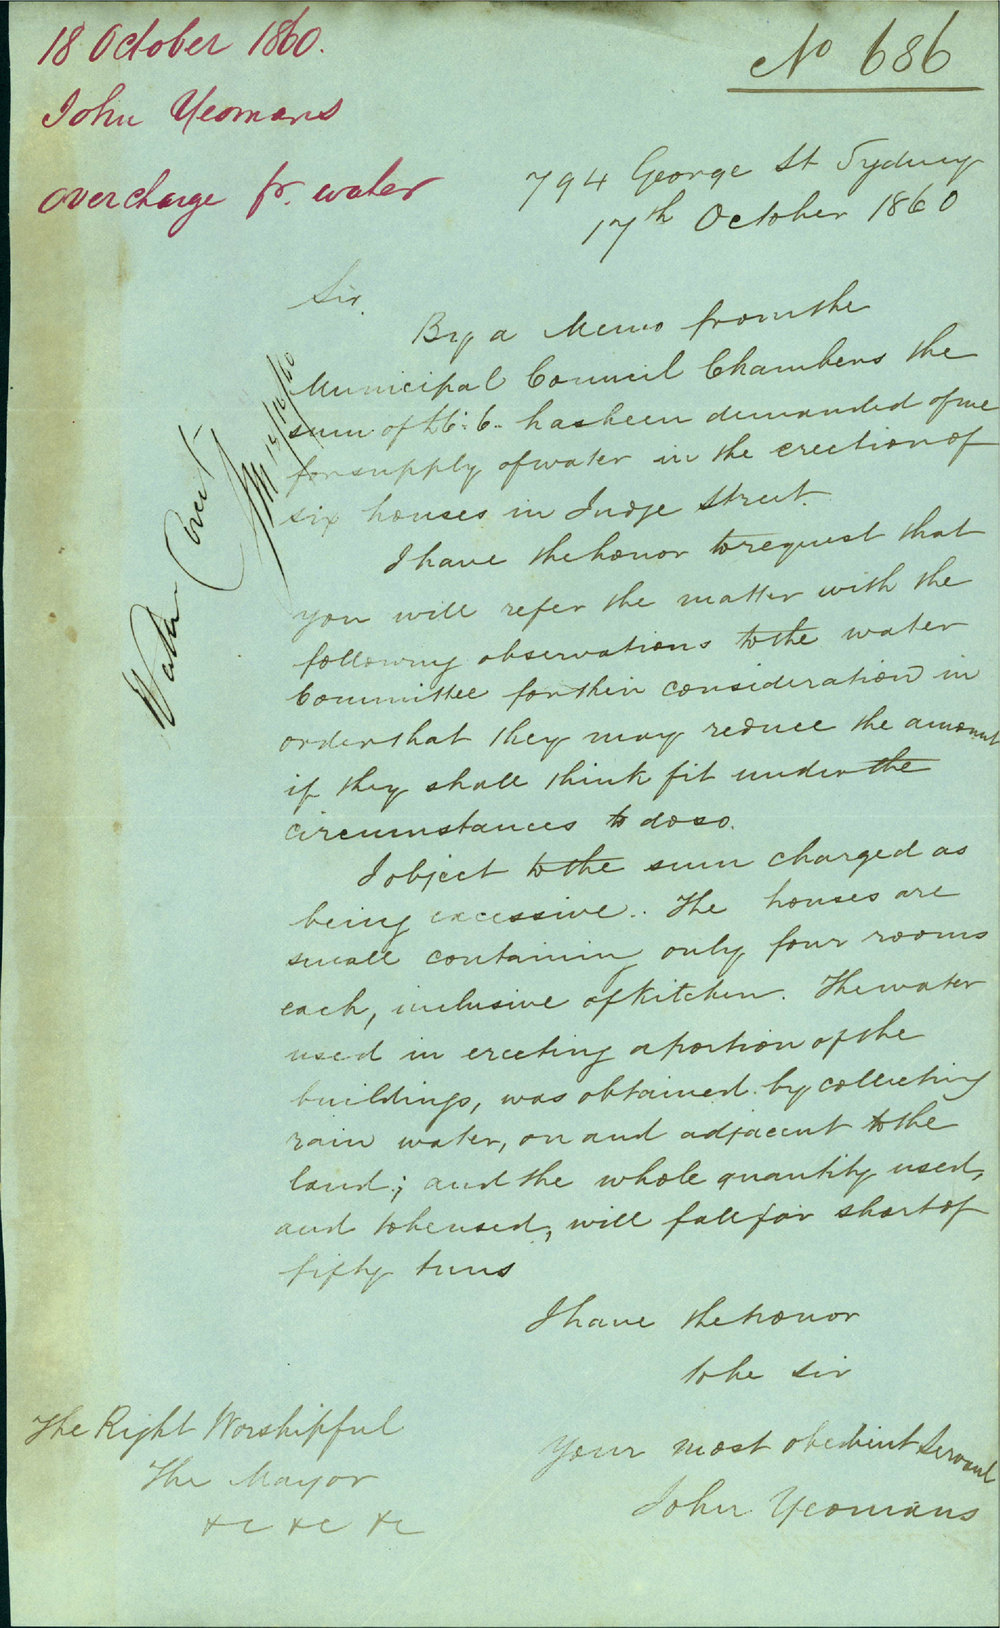 18 October 1860.
John Yeomans
overcharge fr. water
No 686
794 George St Sydney
17th October 1860
Sir.
By a Memo from the
Municipal Council Chambers the
sum of £6.6. has been demanded of me
for supply of water in the erection of
six houses in Judge Street.
I have the honor to request that
you will refer the matter with the
following observations to the water
Committee for their consideration in
order that they may reduce the amount
if they shall think fit under the
circumstances to do so.
I object to the sum charged as
being excessive. The houses are
small containing only four rooms
each, inclusive of Kitchen. The water
used in erecting a portion of the
buildings, was obtained by collecting
rain water, on and adjacent to the
land; and the whole quantity used,
and to be used, will fall far short of
fifty tuns
I have the honor
to be Sir
Your most obedient Servant
John Yeomans
The Right Worshipful
The Mayor
&c &c &c
Water Comt
/10/60